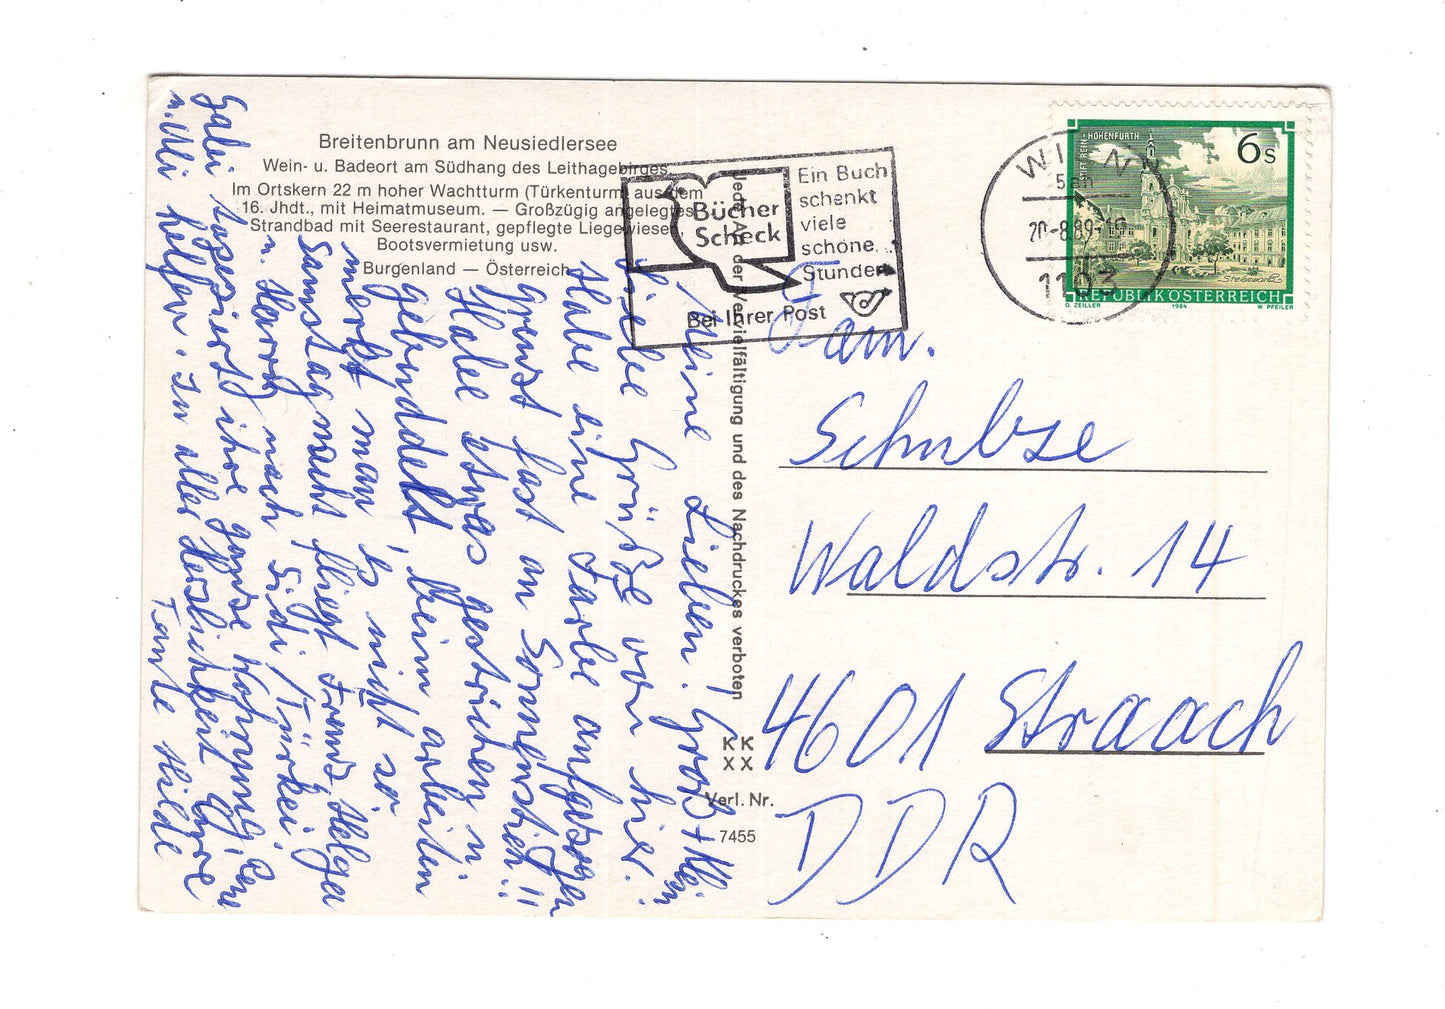 Breitenbrunn am Neusiedlersee
Wein- u. Badeort am Südhang des Leithagebirges.
Im Ortskern 22 m hoher Wachtturm (Türkenturm) aus dem
16. Jhdt., mit Heimatmuseum. — Großzügig angelegtes
Strandbad mit Seerestaurant, gepflegte Liegewiesen,
Bootsvermietung usw.
Burgenland — Österreich
Meine Lieben! Groß + Klein
Liebe Grüße von hier.
Habe eine Farbe anfgezogen
grenzt fast an Sonnenstich!!
Habe etwas gestrichen u.
gebuddelt, beim arbeiten
merkt man es nicht so
Samstagnacht fliegt Franz, Helga
u. Harry nach Sidi/Türkei.
Gabi tapeziert ihre ganze Wohnung, Rene
u. Uli helfen. In aller Herzlichkeit Eure
Tante Hilde
Jede Art der Vervielfältigung und des Nachdruckes verboten
KK
XX
Verl. Nr.
7455
Bücher
Scheck
Ein Buch
schenkt
viele
schöne
Stunden
Bei Ihrer Post
WIEN
20.-8.89-16
1103
STIFT REIN-HOHENFURTH
6s
REPUBLIK ÖSTERREICH
O. ZEILLER 1984 W. PFEILER
Fam.
Schulze
Waldstr. 14
4601 Straach
DDR